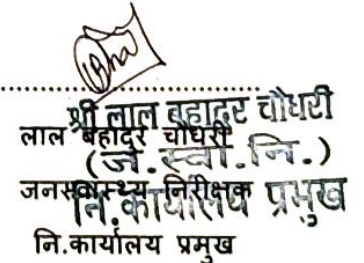 श्री लाल बहादुर चौधरी
लाल बहादुर चौधरी
(ज.स्वा.नि.)
जनस्वास्थ्य निरीक्षक
नि.कार्यालय प्रमुख
नि.कार्यालय प्रमुख